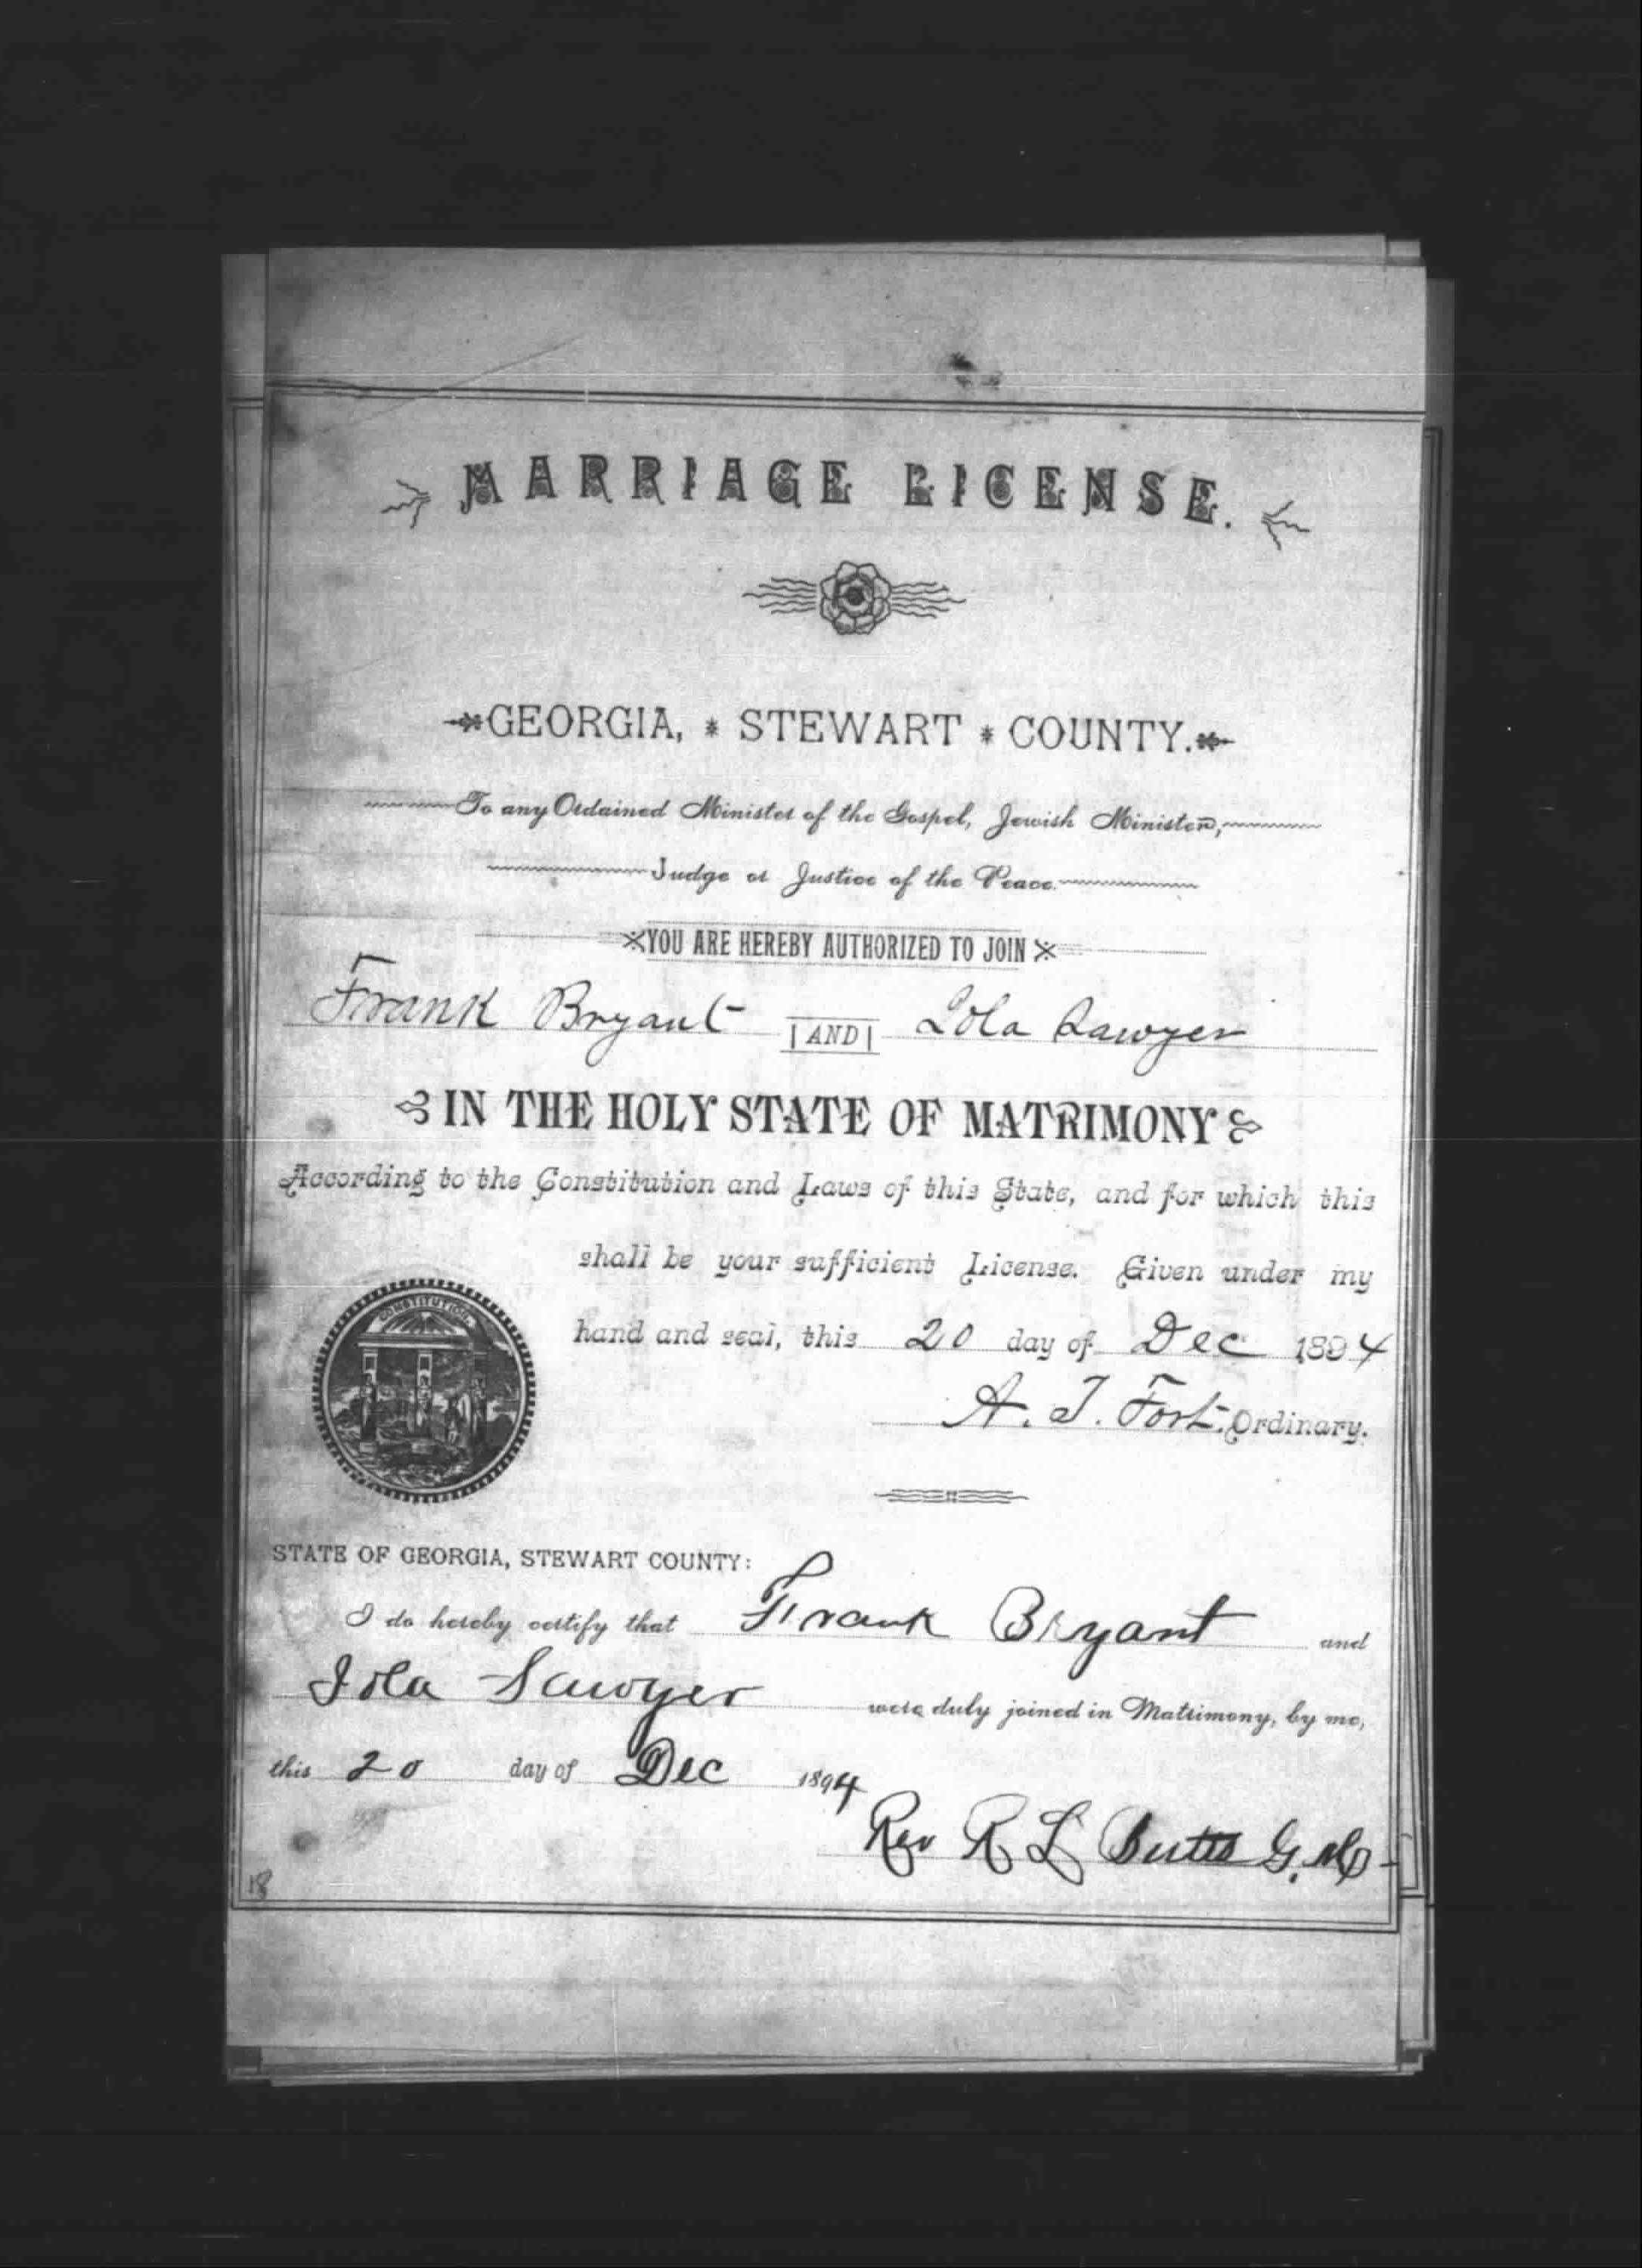 MARRIAGE LICENSE.
GEORGIA, * STEWART * COUNTY.
To any Ordained Minister of the Gospel, Jewish Minister,
Judge or Justice of the Peace.
YOU ARE HEREBY AUTHORIZED TO JOIN
Frank Bryant AND Lola Sawyer
IN THE HOLY STATE OF MATRIMONY
According to the Constitution and Laws of this State, and for which this
shall be your sufficient License. Given under my
hand and seal, this 20 day of Dec 1894
CONSTITUTION
A. T. Fort. Ordinary.
STATE OF GEORGIA, STEWART COUNTY:
I do hereby certify that Frank Bryant and
Iola Sawyer were duly joined in Matrimony, by me,
this 20 day of Dec 1894
Rev R L Butts G.
18